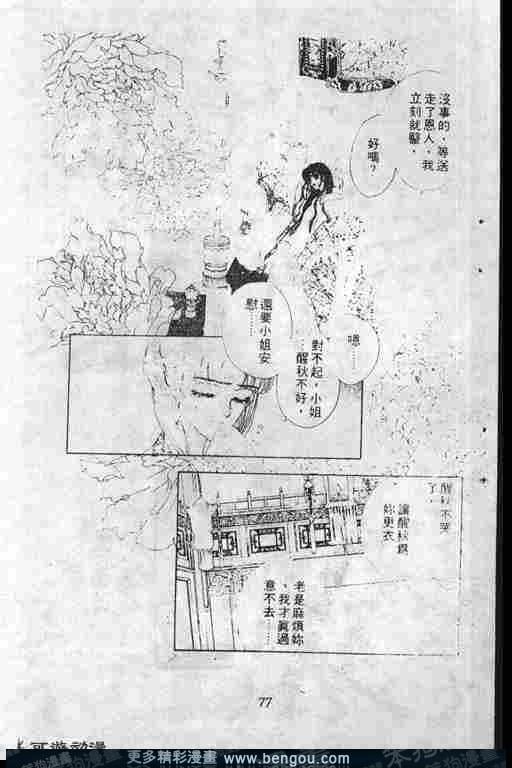 沒事的，等送
走了恩人，我
立刻就醫，
好嗎？
嗯……
對不起，小姐
…醒秋不好，
還要小姐安
慰……
醒秋不哭
了，
讓醒秋幫
妳更衣
老是麻煩妳
，我才真過
意不去……
77
可遊動漫
更多精彩漫畫
www.bengou.com